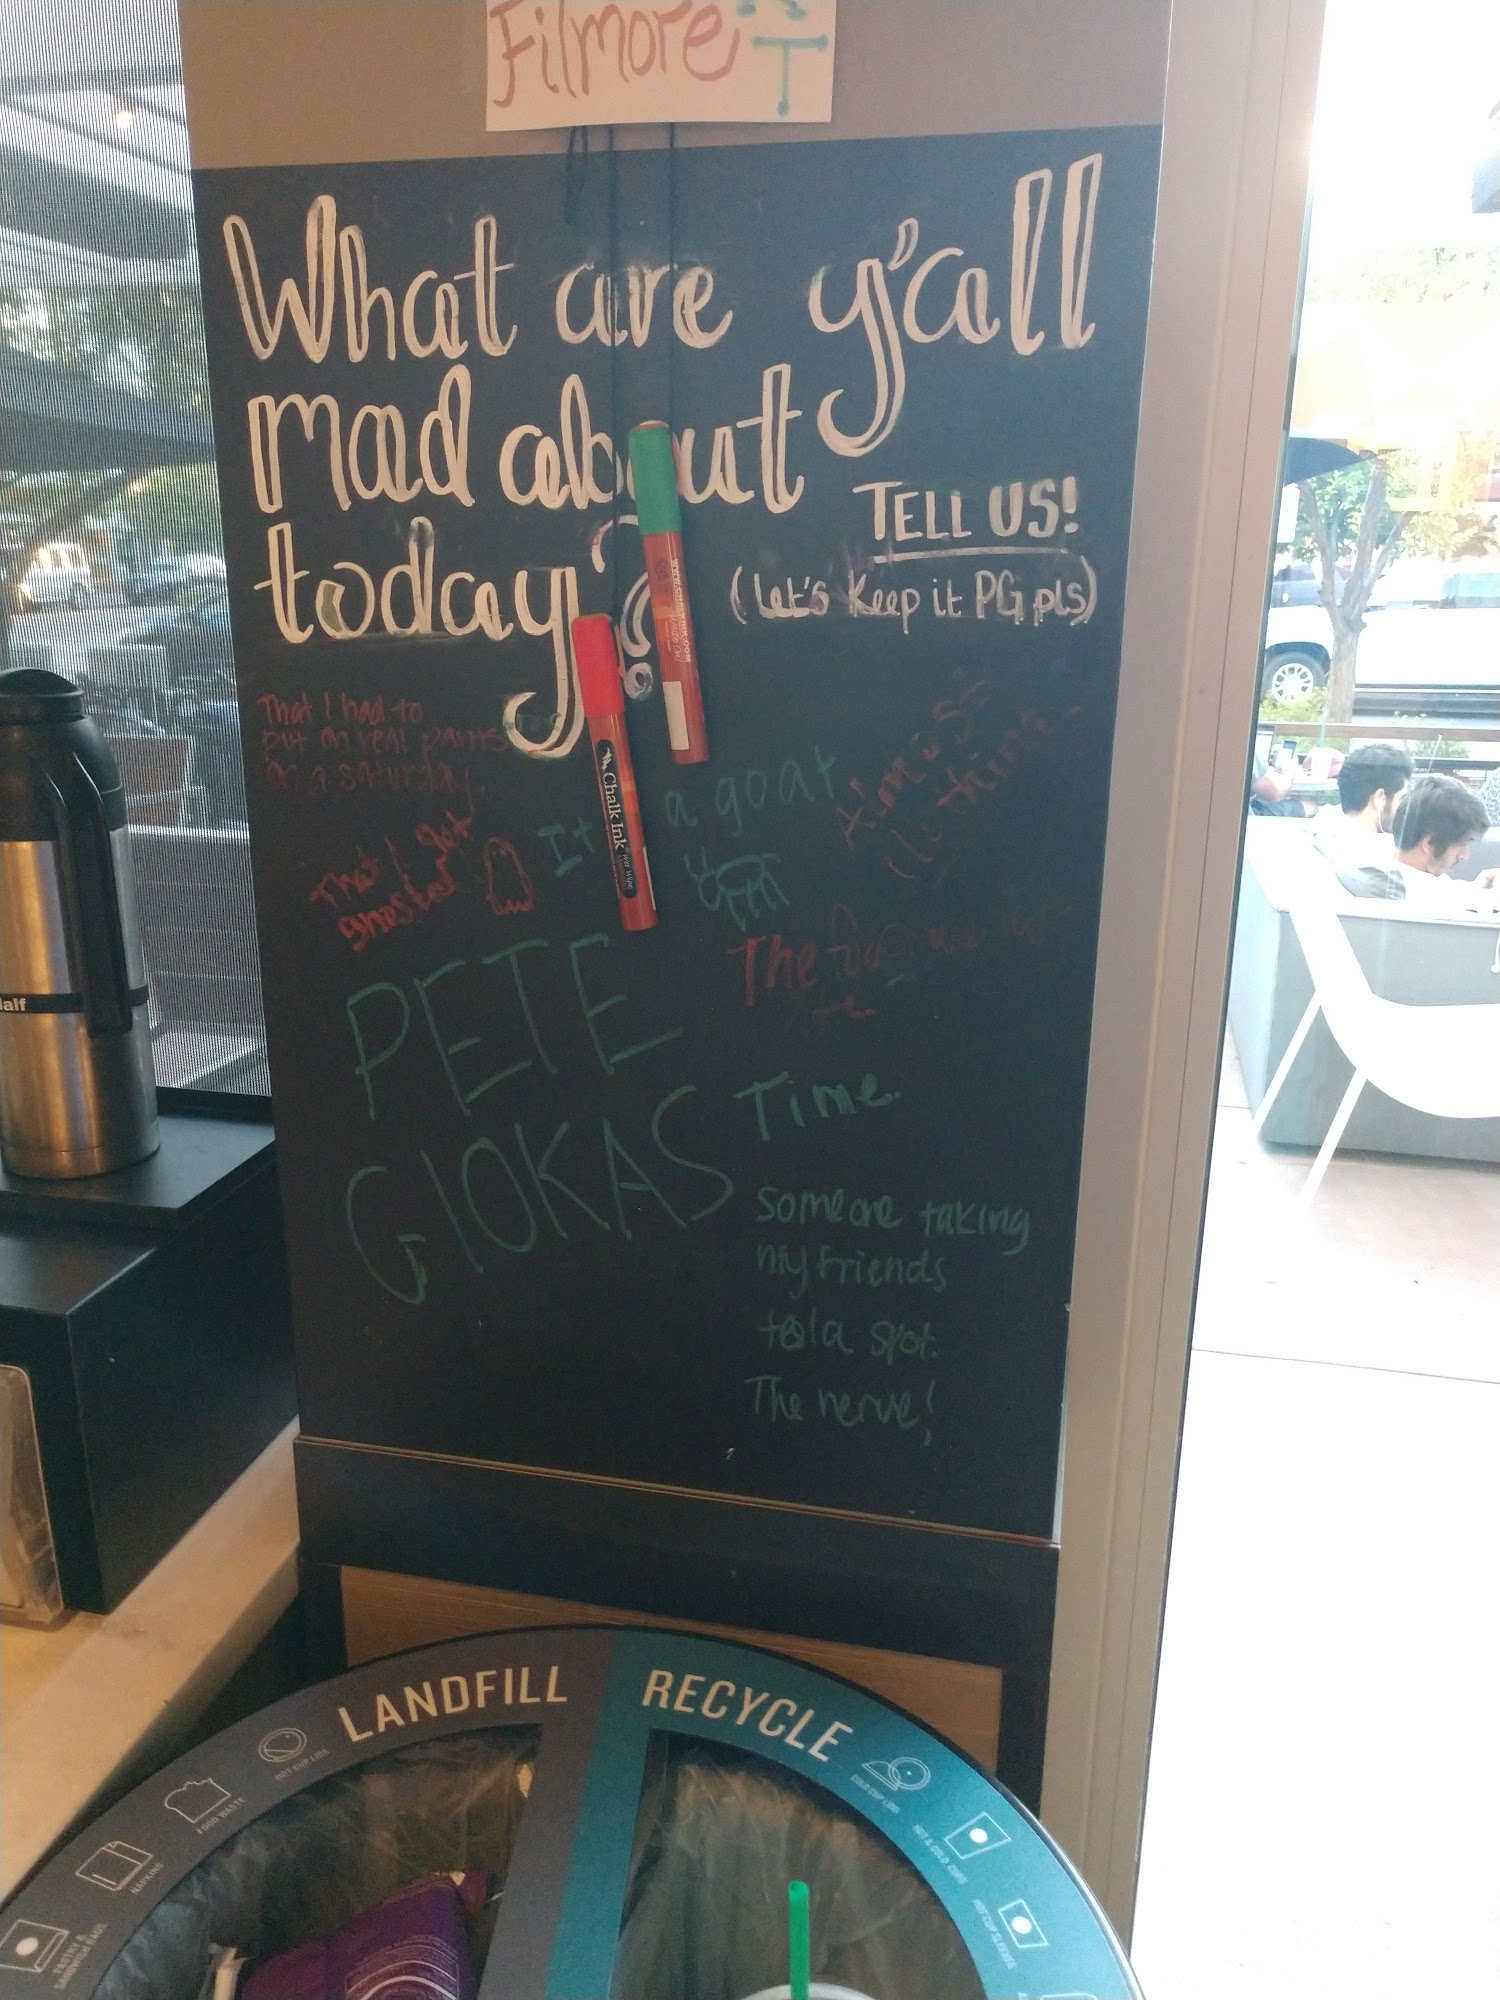 Filmore
What are y'all
mad about
today?
TELL US!
(Let's Keep it PG pls)
That I had to
put on real pants
on a saturday.
That I got
ghosted
It
a goat
Almost
The
PETE
GIOKAS
Time.
someone taking
my friends
tesla spot.
The nerve!
Chalk Ink
Wet Wipe
Half
LANDFILL
RECYCLE
HOT CUP LIDS
FOOD WASTE
NAPKINS
PASTRY &
SANDWICH BAGS
COLD CUP LIDS
HOT & COLD CUPS
HOT CUP SLEEVES